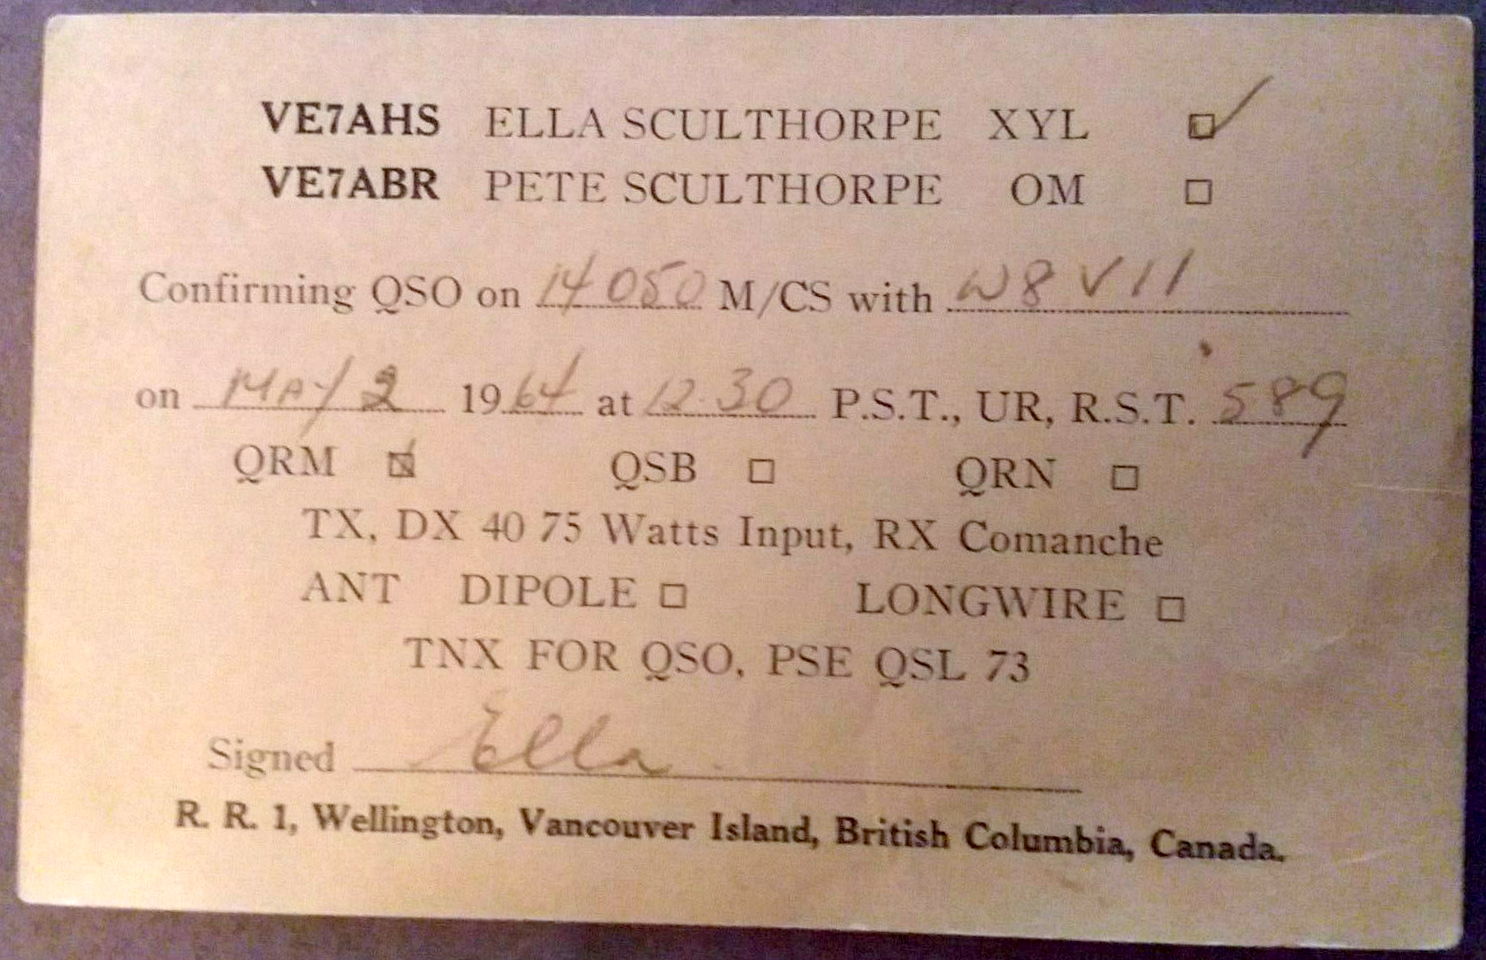 VE7AHS ELLA SCULTHORPE XYL
VE7ABR PETE SCULTHORPE OM
Confirming QSO on 14050 M/CS with W8VII
on MAY 2 1964 at 12.30 P.S.T., UR, R.S.T. 589
QRM QSB QRN
TX, DX 40 75 Watts Input, RX Comanche
ANT DIPOLE LONGWIRE
TNX FOR QSO, PSE QSL 73
Signed Ella
R. R. 1, Wellington, Vancouver Island, British Columbia, Canada.